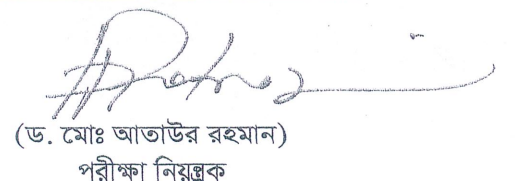 (ড. মোঃ আতাউর রহমান)
পরীক্ষা নিয়ন্ত্রক